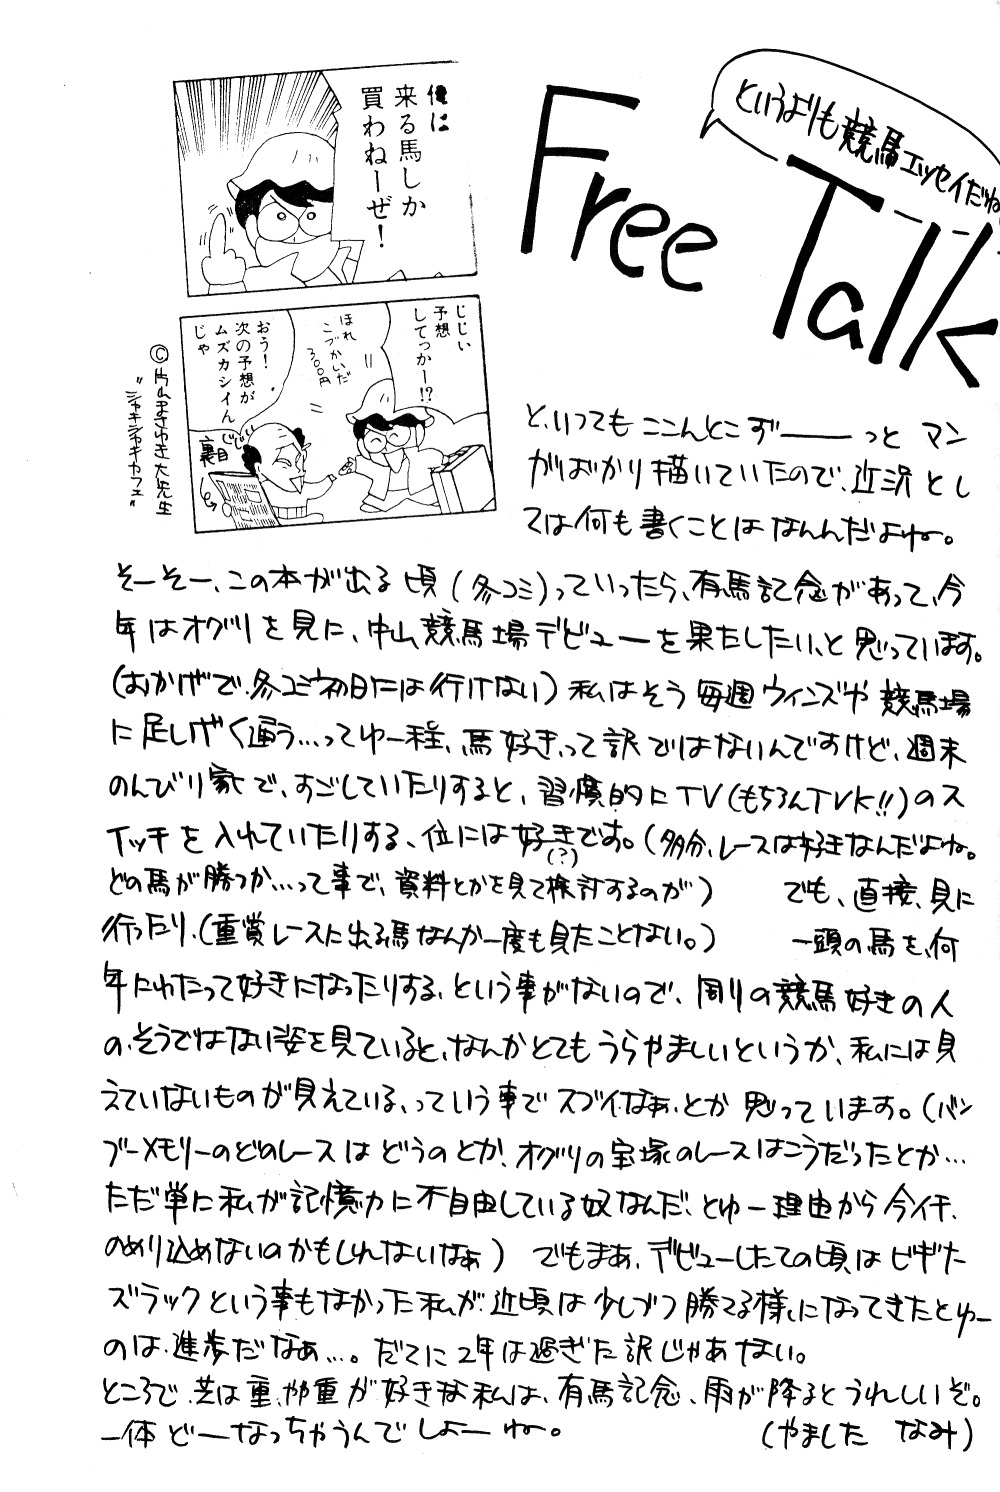 Free Talk
というよりも競馬エッセイだね
俺に
来る馬しか
買わねーぜ!
じじい
予想
してっかー!?
ほれ
こづかいだ
300円
おう!
次の予想が
ムズカシイん
じゃ
裏目
©片山まさゆき大先生
"シャキシャキカフェ"
と、いってもここんとこずーーっと マン
がばかり描いていたので、近況とし
ては何も書くことはなんんだよね。
そーそー、この本が出る頃(冬コミ)っていったら、有馬記念があって、今
年はオグリを見に、中山競馬場デビューを果たしたい、と思っています。
(おかげで、冬コミ初日には行けない)私はそう毎週ウィンズや競馬場
に足しげく通う…ってゆー程、馬好き、って訳ではないんですけど、週末
のんびり家で、すごしていたりすると、習慣的にTV(もちろんTVK!!)のス
イッチを入れていたりする、位には好きです。(多分、レースは好きなんだよね。
(?)
どの馬が勝つか…って事で、資料とかを見て検討するのが) でも、直接、見に
行ったり、(重賞レースに出る馬なんか一度も見たことない。) 一頭の馬を、何
年にわたって好きになったりする、という事がないので、周りの競馬好きの人
の、そうではない姿を見ていると、なんかとてもうらやましいというか、私には見
えていないものが見えている、っていう事でスゴイなぁ、とか思っています。(バン
ブーメモリーのどのレースはどうのとか、オグリの宝塚のレースはこうだったとか…
ただ単に私が記憶力に不自由している奴なんだ、とゆー理由から今イチ、
のめり込めないのかもしれないなぁ) でもまぁ、デビューしたての頃はビギナ
ズラックという事もなかった私が、近頃は少しづつ勝てる様になってきたとゆー
のは、進歩だなぁ…。だてに2年は過ぎた訳じゃあない。
ところで、芝は重、やや重が好きな私は、有馬記念、雨が降るとうれしいぞ。
一体どーなっちゃうんでしょーね。 (やました なみ)